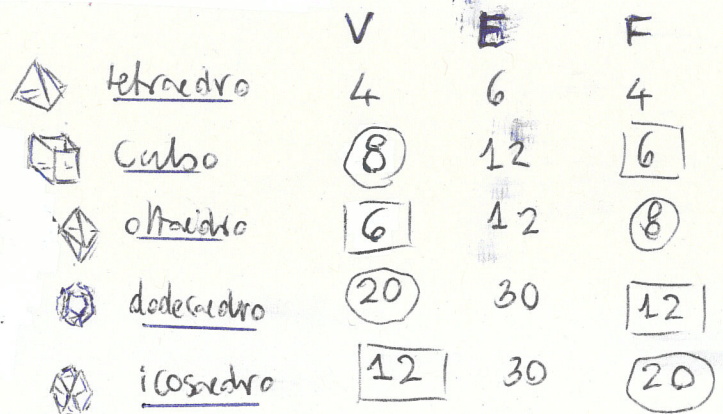 V E F
tetraedro 4 6 4
Cubo 8 12 6
ottaedro 6 12 8
dodecaedro 20 30 12
icosaedro 12 30 20